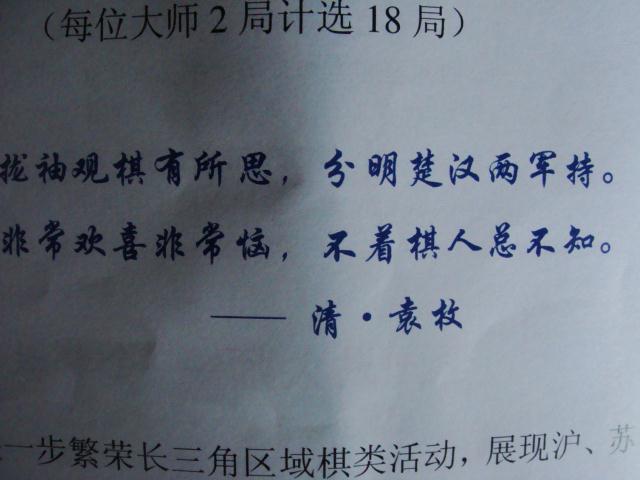 （每位大师 2 局计选 18 局）
拢袖观棋有所思，分明楚汉两军持。
非常欢喜非常恼，不着棋人总不知。
—— 清·袁枚
一步繁荣长三角区域棋类活动，展现沪、苏